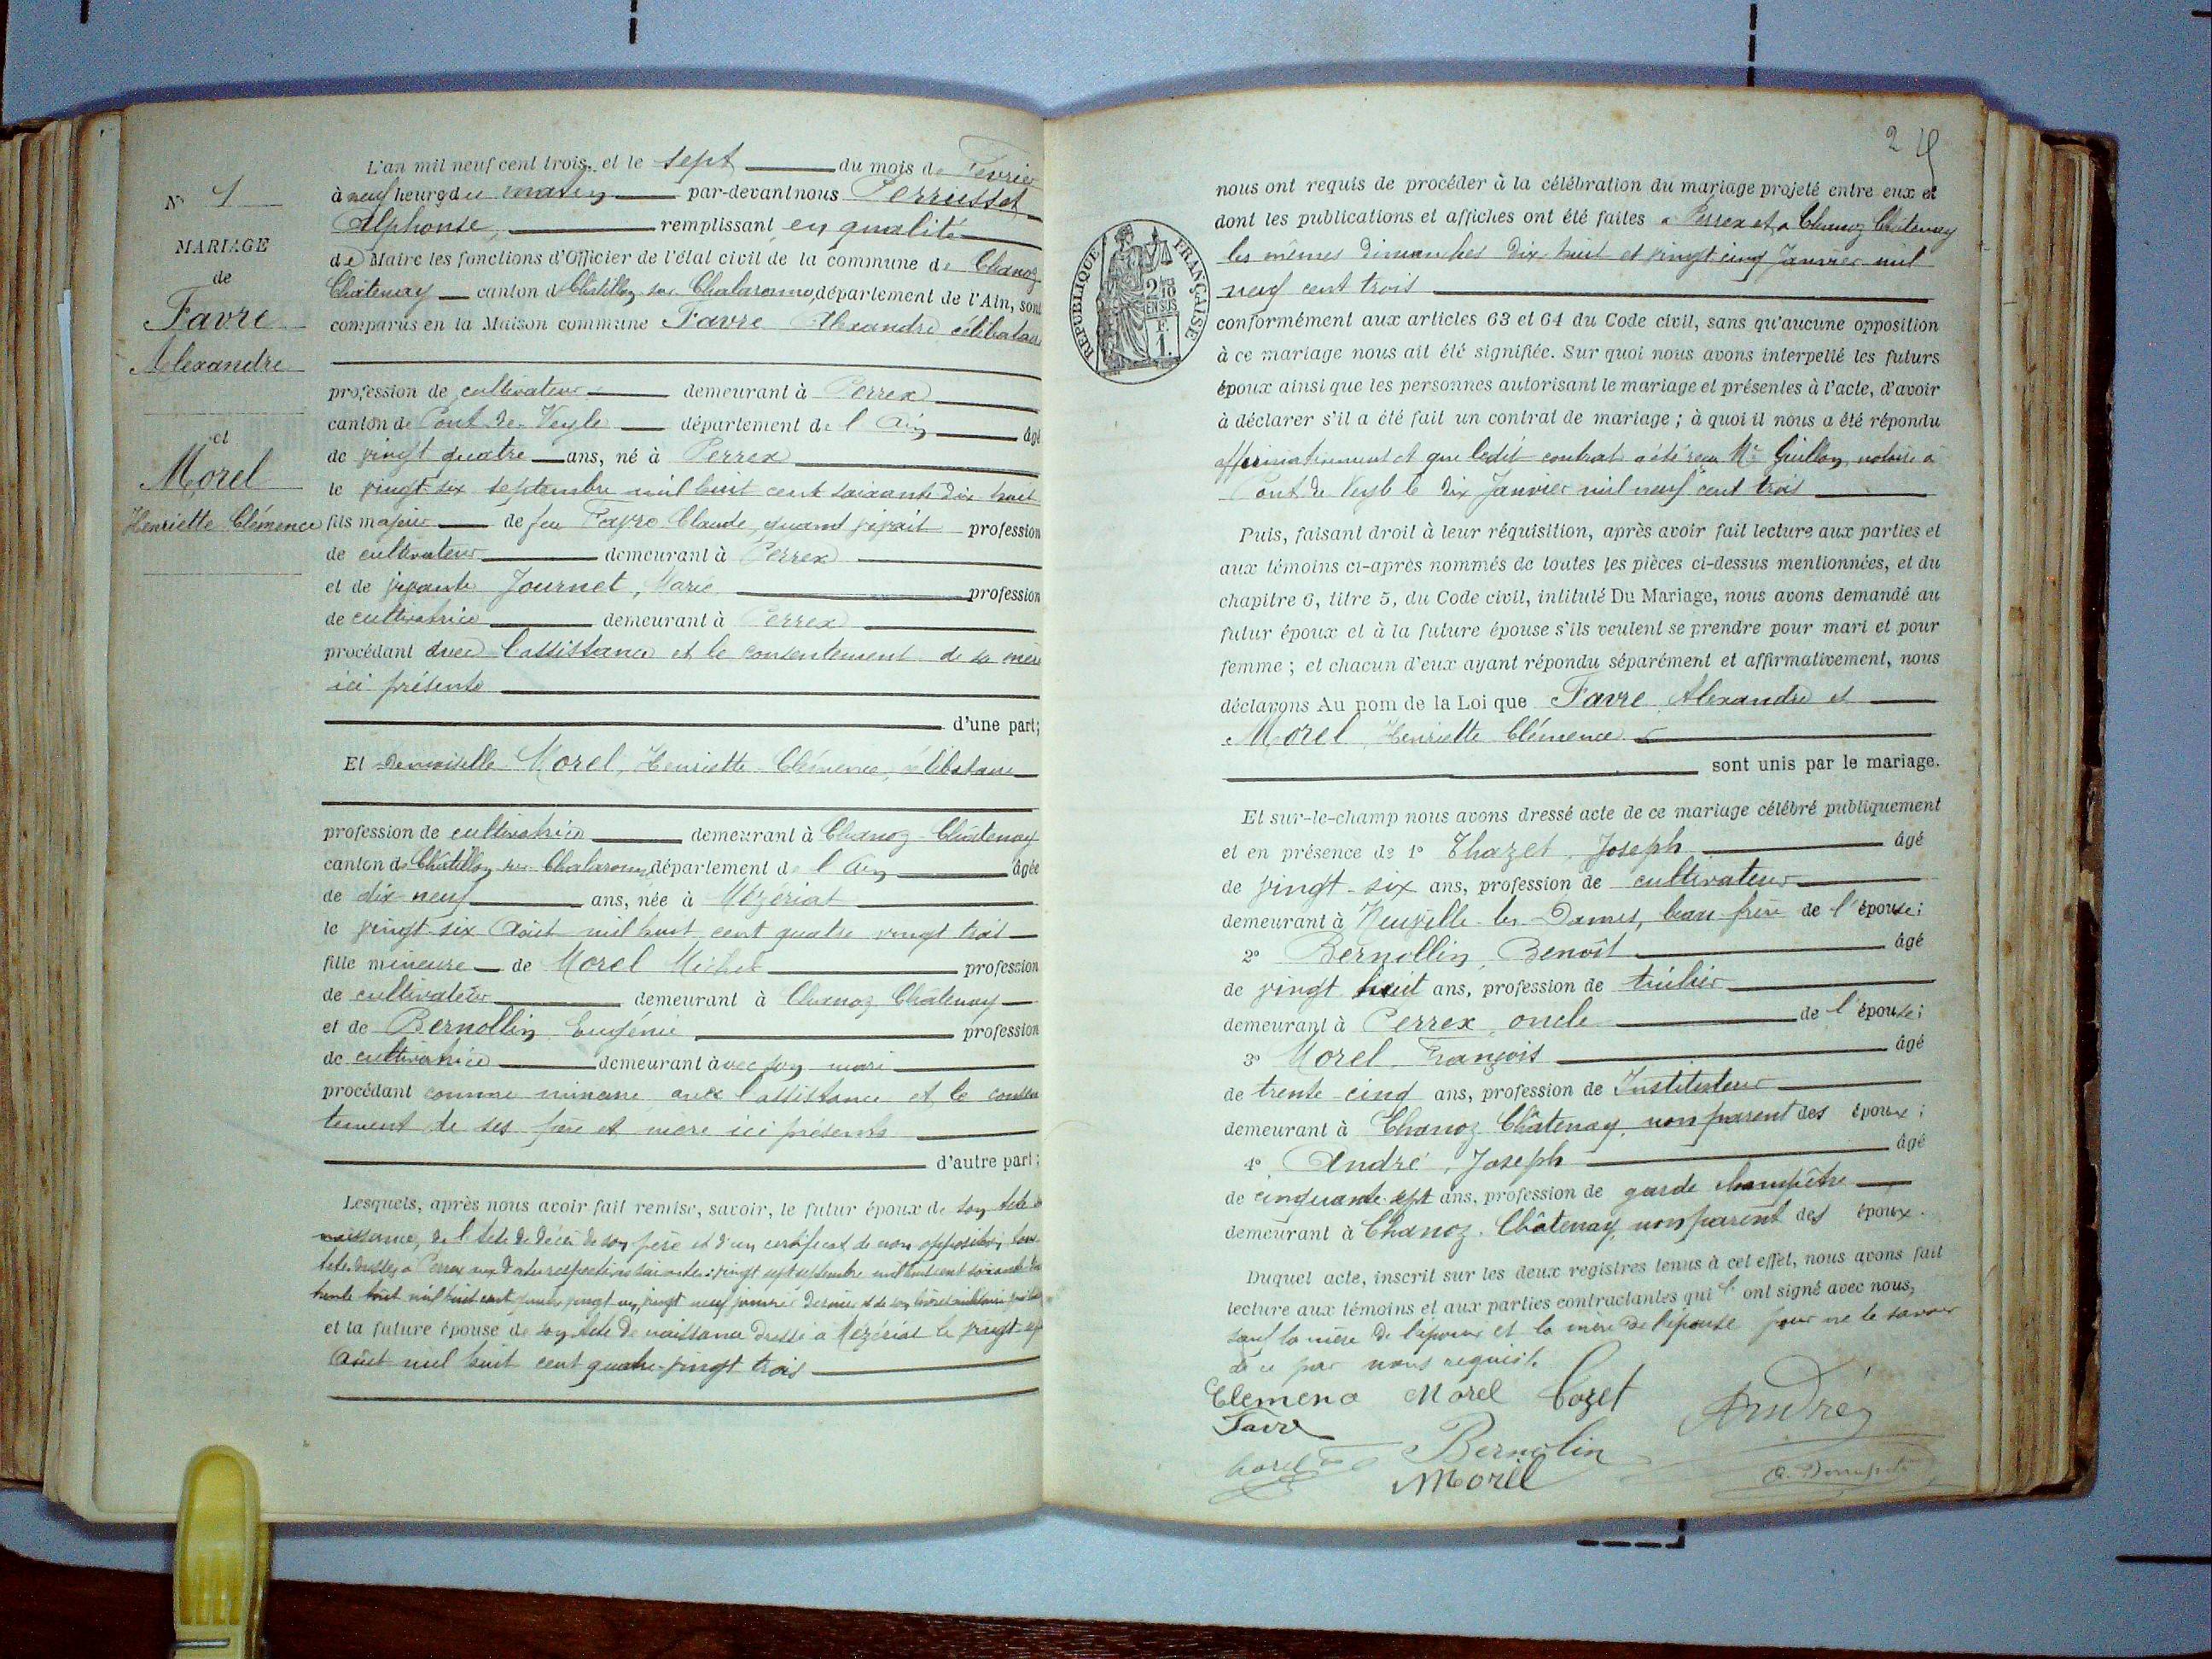 L'an mil neuf cent trois, et le sept du mois de Février
à neuf heures du matin par-devant nous Perrusset
Alphonse, remplissant en qualité
de Maire les fonctions d'Officier de l'état civil de la commune de Chanoz
Châtenay canton de Châtillon sur Chalaronne, département de l'Ain, sont
comparus en la Maison commune Favre Alexandre célibataire
profession de cultivateur demeurant à Perrex
canton de Pont de Veyle département de l'Ain âgé
de vingt quatre ans, né à Perrex
le vingt-six septembre mil huit cent soixante dix huit
fils majeur de feu Favre Claude, quand vivait profession
de cultivateur demeurant à Perrex
et de vivante Journet, Marie profession
de cultivatrice demeurant à Perrex
procédant avec l'assistance et le consentement de sa mère
ici présente
d'une part;
Et demoiselle Morel, Henriette Clémence, célibataire
profession de cultivatrice demeurant à Chanoz-Châtenay
canton de Châtillon sur Chalaronne département de l'Ain âgée
de dix neuf ans, née à Mézériat
le vingt-six Août mil huit cent quatre vingt trois
fille mineure de Morel Michel profession
de cultivateur demeurant à Chanoz Châtenay
et de Bernollin Eugénie profession
de cultivatrice demeurant avec son mari
procédant comme mineure avec l'assistance et le consen
tement de ses père et mère ici présents
d'autre part;
Lesquels, après nous avoir fait remise, savoir, le futur époux de son acte de
naissance, de l'acte de décès de son père et d'un certificat de non opposition
Perrex aux dates respectives suivantes: vingt sept septembre mil huit cent soixante dix
huit mil huit cent quatre vingt un, vingt neuf janvier dernier et de son livret militaire
et la future épouse de son acte de naissance dressé à Mézériat le vingt-sept
Août mil huit cent quatre-vingt trois
No 1
MARIAGE
de
Favre
Alexandre
et
Morel
Henriette Clémence
24
nous ont requis de procéder à la célébration du mariage projeté entre eux et
dont les publications et affiches ont été faites à Perrex et à Chanoz Châtenay
les mêmes dimanches dix-huit et vingt cinq Janvier mil
neuf cent trois
conformément aux articles 63 et 64 du Code civil, sans qu'aucune opposition
à ce mariage nous ait été signifiée. Sur quoi nous avons interpellé les futurs
époux ainsi que les personnes autorisant le mariage et présentes à l'acte, d'avoir
à déclarer s'il a été fait un contrat de mariage; à quoi il nous a été répondu
affirmativement et que ledit contrat a été reçu Me Guillon, notaire à
Pont de Veyle le dix Janvier mil neuf cent trois
Puis, faisant droit à leur réquisition, après avoir fait lecture aux parties et
aux témoins ci-après nommés de toutes les pièces ci-dessus mentionnées, et du
chapitre 6, titre 5, du Code civil, intitulé Du Mariage, nous avons demandé au
futur époux et à la future épouse s'ils veulent se prendre pour mari et pour
femme; et chacun d'eux ayant répondu séparément et affirmativement, nous
déclarons Au nom de la Loi que Favre Alexandre et
Morel Henriette Clémence
sont unis par le mariage.
Et sur-le-champ nous avons dressé acte de ce mariage célébré publiquement
et en présence de 1o Thazet, Joseph âgé
de vingt-six ans, profession de cultivateur
demeurant à Neuville-les-Dames, beau frère de l'épouse;
2o Bernollin, Benoît âgé
de vingt huit ans, profession de
demeurant à Perrex, oncle de l'épouse;
3o Morel, François âgé
de trente-cinq ans, profession de Instituteur
demeurant à Chanoz Châtenay, non parent des époux;
4o André, Joseph âgé
de cinquante sept ans, profession de garde champêtre
demeurant à Chanoz-Châtenay, non parent des époux.
Duquel acte, inscrit sur les deux registres tenus à cet effet, nous avons fait
lecture aux témoins et aux parties contractantes qui l' ont signé avec nous,
sauf la mère de l'époux et la mère de l'épouse pour ne le savoir
de ce par nous requis.
Clemence Morel Cozet André
Favre
Bernolin
Morel
RÉPUBLIQUE FRANÇAISE
2/10
EN SUS
F.
1.